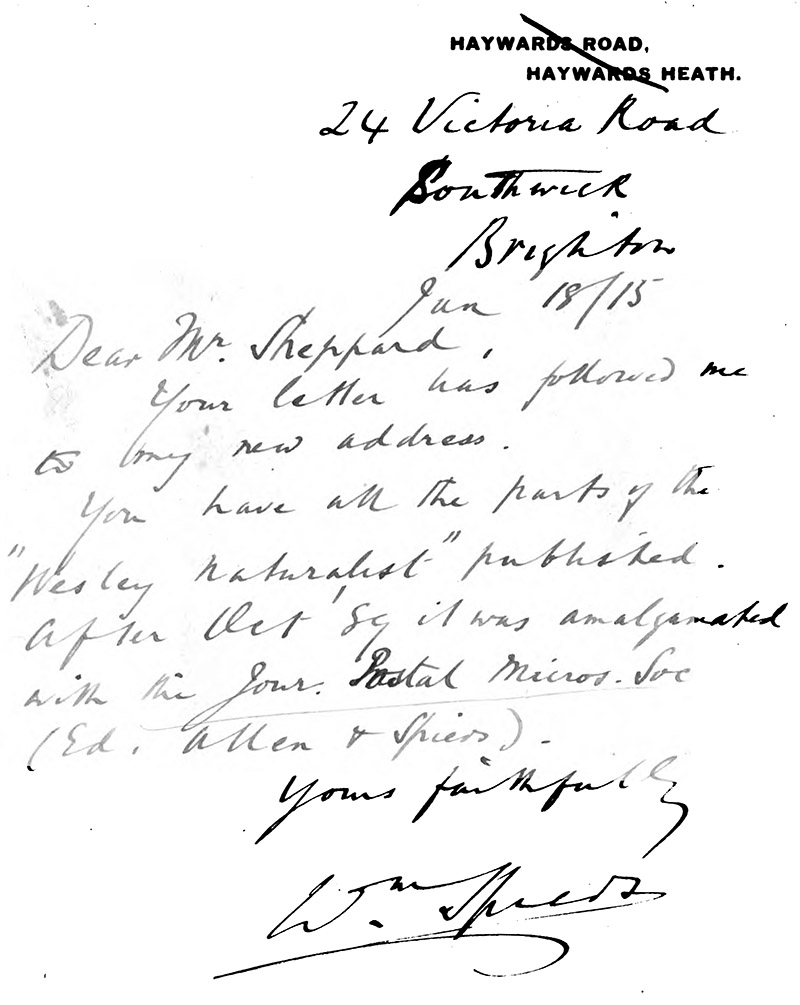 HAYWARDS ROAD,
HAYWARDS HEATH.
24 Victoria Road
Southwick
Brighton
Jan 18/15
Dear Mr. Sheppard,
Your letter has followed me
to my new address.
You have all the parts of the
"Wesley Naturalist" published.
After Oct '89 it was amalgamated
with the Jour. Postal Micros. Soc
(Ed. Allen & Spiers).
Yours faithfully
Wm. Spiers